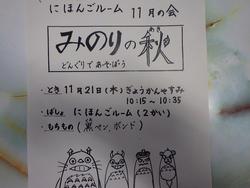 にほんごルーム 11月の会
みのりの秋
あき
どんぐりであそぼう
・とき 11月21日(水)ぎょうかんやすみ
10:15～10:35
・ばしょ にほんごルーム(2かい)
・もちもの(黒ペン、ボンド)